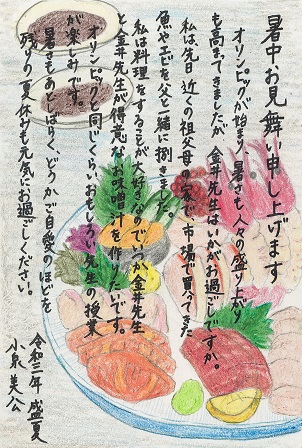 暑中お見舞い申し上げます
オリンピックが始まり、暑さも人々の盛り上がり
も高まってきましたが、金井先生はいかがお過ごしですか。
私は先日近くの祖父母の家で、市場で買ってきた
魚やエビを父と一緒に捌きました。
私は料理をすることが大好きなので、いつか金井先生
と金井先生が得意なお味噌汁を作りたいです。
オリンピックと同じくらいおもしろい先生の授業
が楽しみです。
暑さもあとしばらく、どうかご自愛のほどを
残りの夏休みも元気にお過ごしください。
令和三年 盛夏
小泉 美公